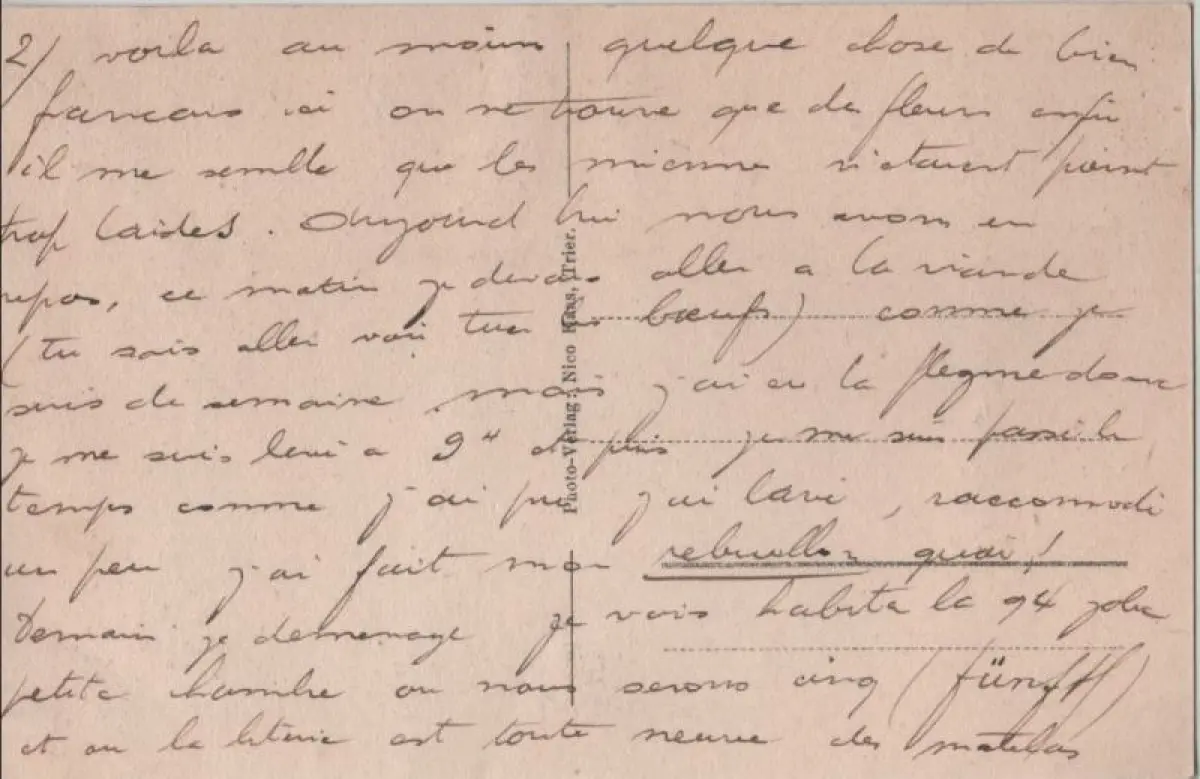 2/ voila au moins quelque chose de bien
francais ici on ne trouve que des fleurs enfin
il me semble que les miennes n'etaient point
trop laides. Aujourd hui nous avons eu
repos, ce matin je devais aller a la viande
(tu sais aller voir tuer les bœufs) comme je
suis de semaine mais j'ai eu la flegme donc
je me suis levé a 9h et puis je me suis passé le
temps comme j'ai pu j'ai lavé, raccomodé
un peu j'ai fait mon quoi!
Demain je demenage je vais habiter la 94 jolie
petite chambre ou nous serons cinq (fünfff)
et ou la literie est toute neuve des matelas
Photo-Verlag: Nico Kaas, Trier.